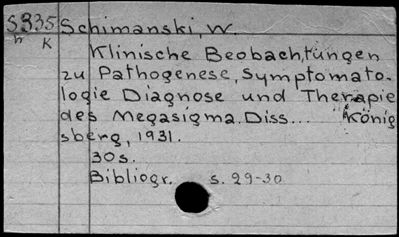 S335 Schimanski, W.
h K
Klinische Beobachtungen
zu Pathogenese, Symptomato-
logie Diagnose und Therapie
des Megasigma. Diss... König
sberg, 1931.
30s.
Bibliogr. s. 29-30